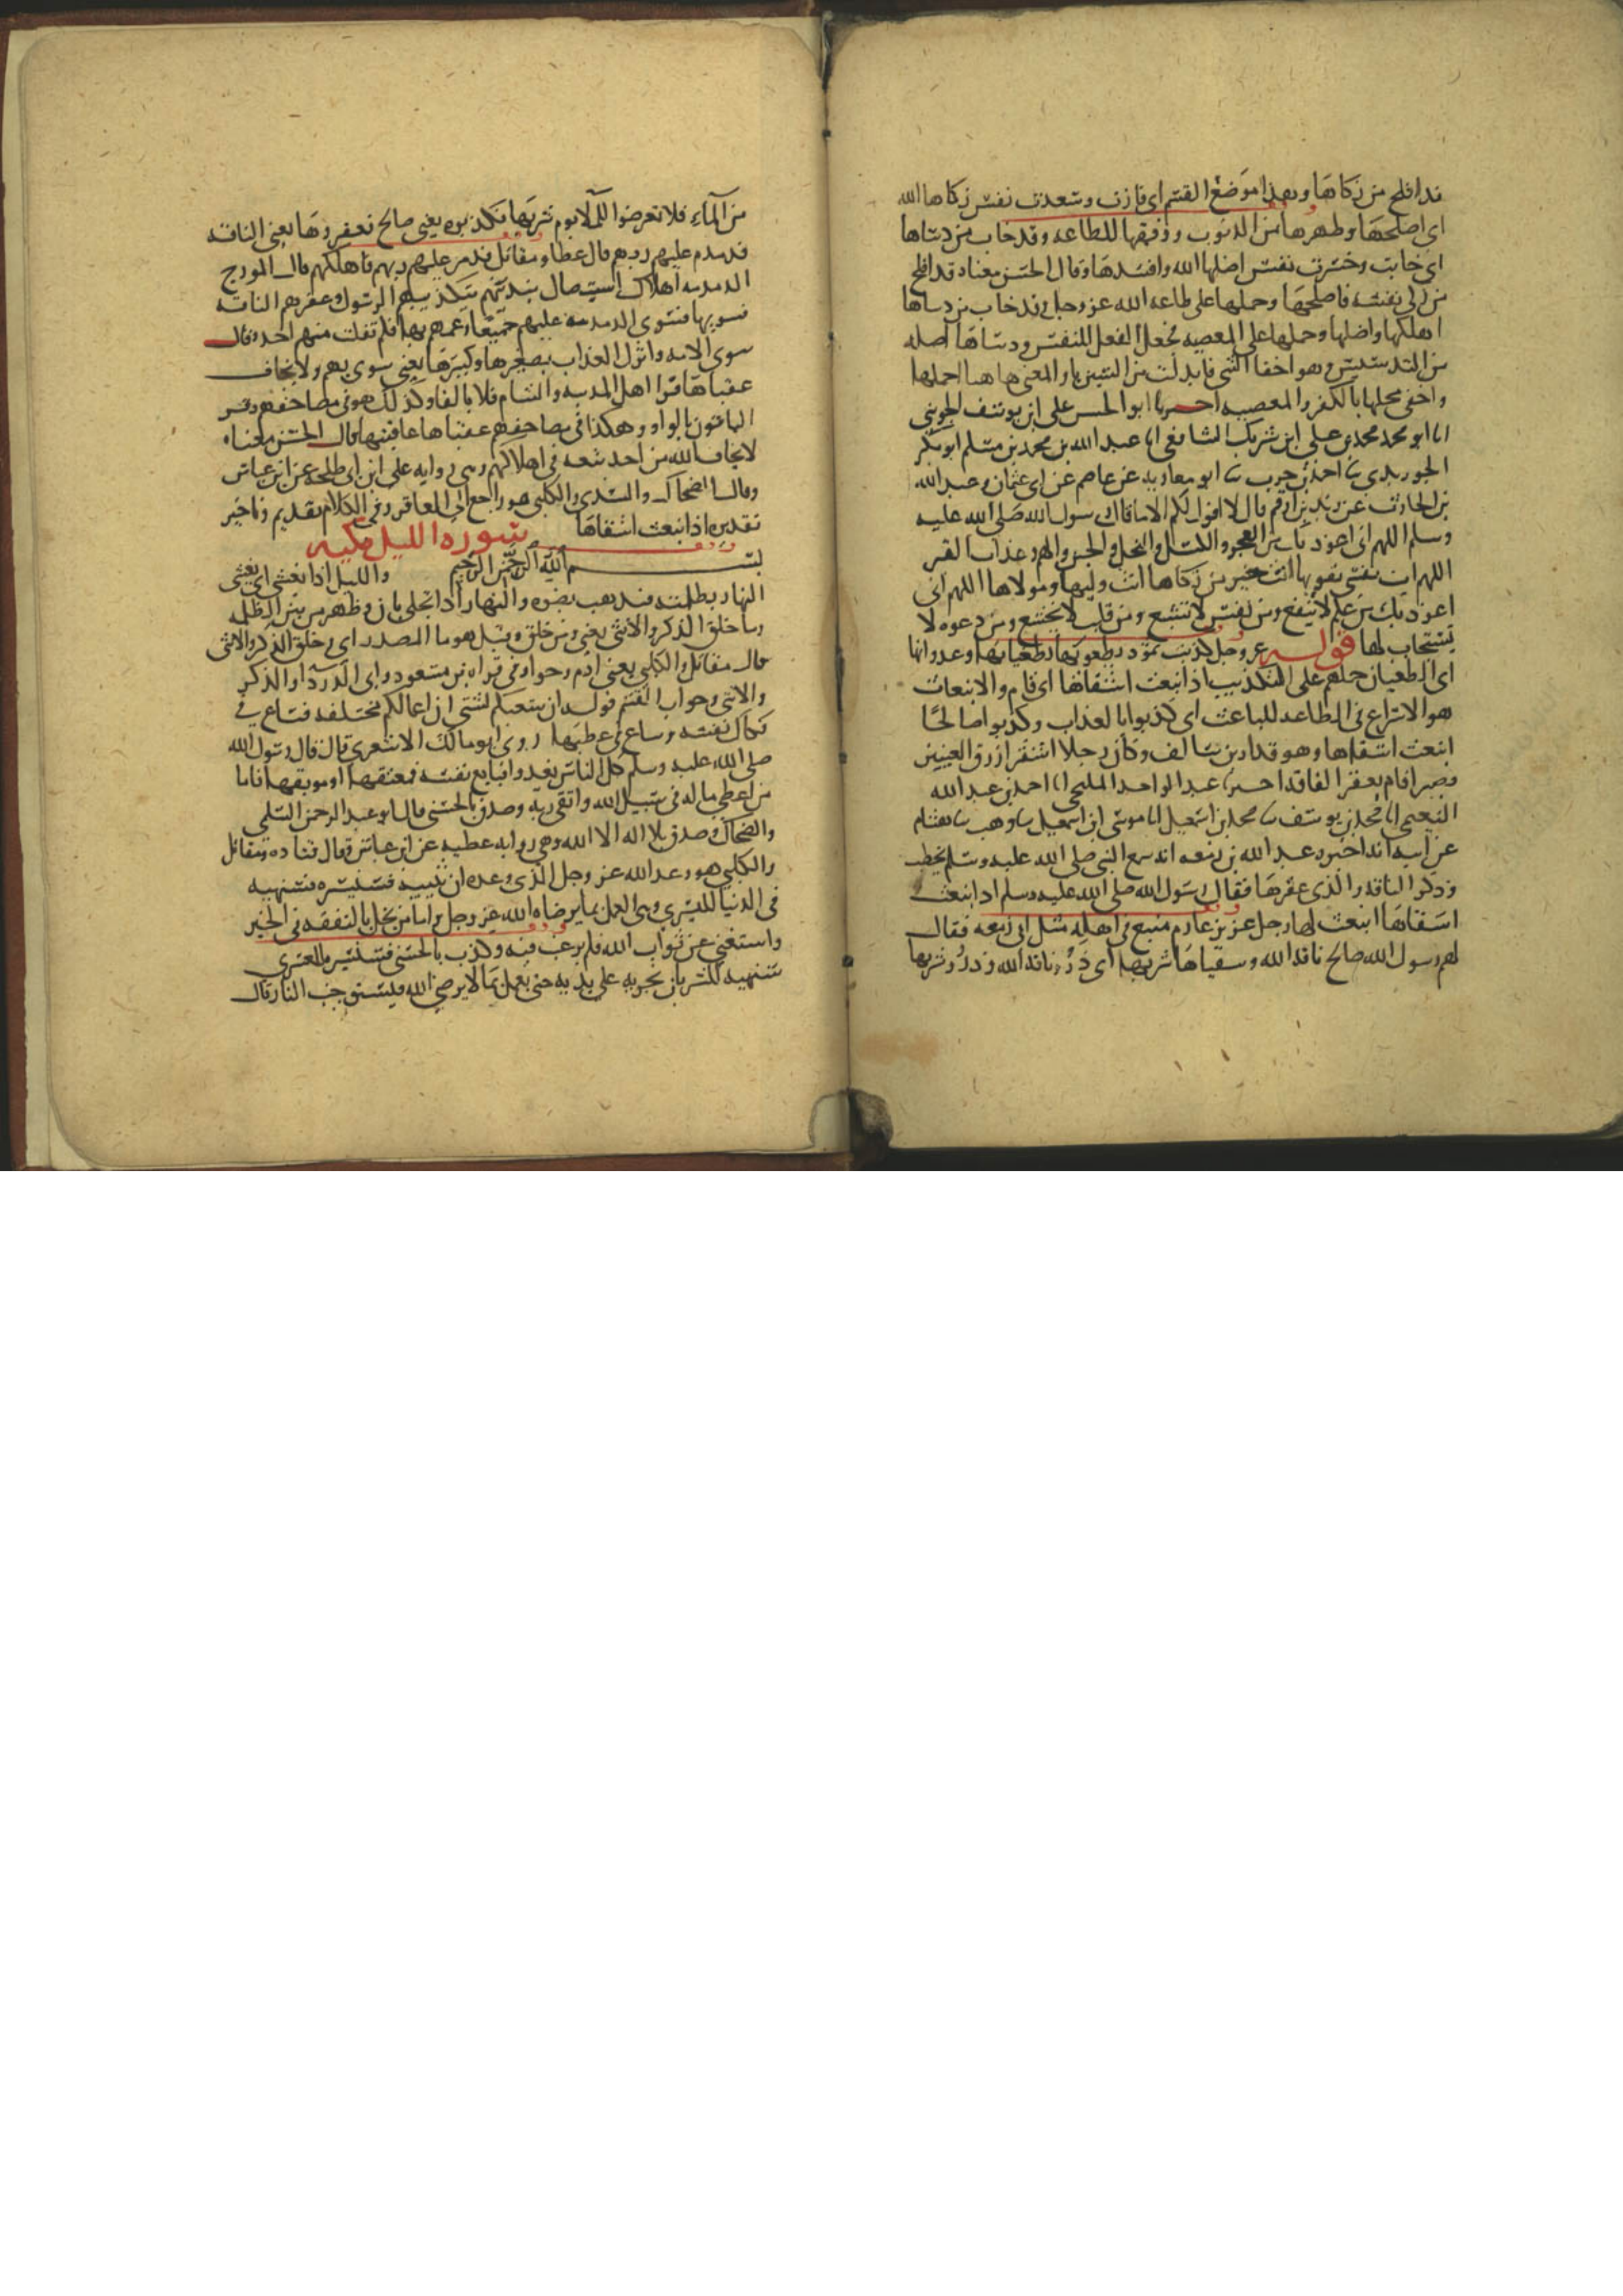 قد افلح من زكاها وهذا موضع القسم اى فازت وسعدت نفس زكاها الله
اى اصلحها وطهرها من الذنوب ووفقها للطاعه وقد خاب من دساها
اى خابت وخسرت نفس اضلها الله وافسدها وقال الحسن معناه قد افلح
من زكى نفسه فاصلحها وحملها على طاعه الله عز وجل وقد خاب من دساها
اهلكها واضلها وحملها على المعصيه فجعل الفعل للنفس ودساها اصله
من التدسيس وهو اخفا الشى فابدلت من السين يا والمعنى هاهنا اخملها
واخفى محلها بالكفر والمعصيه اخبرنا ابو الحسن على ابن يوسف الجوينى
انا ابو محمد محمد بن على ابن شريك الشافعى انا عبد الله بن محمد بن مسلم ابو بكر
الجوربدى نا احمد بن حرب نا ابو معاويه عن عاصم عن ابى عثمان وعبد الله
بن الحارث عن زيد بن ارقم قال لا اقول لكم الا ما قال رسول الله صلى الله عليه
وسلم اللهم انى اعوذ بك من العجز والكسل والبخل والجبن والهم وعذاب القبر
اللهم ات نفسى تقويها انت خير من زكاها انت وليها ومولاها اللهم انى
اعوذ بك من علم لا ينفع ومن نفس لا تشبع ومن قلب لا يخشع ومن دعوه لا
يستجاب لها قوله عز وجل كذبت ثمود بطغويها بطغيانها وعدوانها
اى الطغيان حملهم على التكذيب اذ انبعث اشقاها اى قام والانبعاث
هو الاسراع فى الطاعه للباعث اى كذبوا بالعذاب وكذبوا صالحا
انبعث اشقاها وهو قدار بن سالف وكان رجلا اشقر ازرق العينين
قصيرا قام بعقر الناقه اخبرنا عبد الواحد المليحى انا احمد بن عبد الله
النعيمى انا محمد بن يوسف نا محمد بن اسمعيل انا موسى ابن اسمعيل نا وهيب نا هشام
عن ابيه انه اخبره عبد الله بن زمعه انه سمع النبى صلى الله عليه وسلم يخطب
وذكر الناقه والذى عقرها فقال رسول الله صلى الله عليه وسلم اذ انبعث
اشقاها انبعث لها رجل عزيز عارم منيع فى اهله مثل ابى زمعه فقال
لهم رسول الله صالح ناقه الله وسقياها شربها اى ذروا ناقه الله وذروا شربها
من الماء فلا تعرضوا للما يوم شربها فكذبوه يعنى صالح فعقروها يعنى الناقه
فدمدم عليهم ربهم قال عطا ومقاتل فدمر عليهم ربهم فاهلكهم قال المورج
الدمدمه اهلاك استيصال بذنبهم بتكذيبهم الرسول وعقرهم الناقه
فسويها فسوى الدمدمه عليهم جميعا وعمهم بها فلم تفلت منهم احد وقال
سوى الامه وانزل العذاب بصغيرها وكبيرها يعنى سوى بهم ولا يخاف
عقباها قرا اهل المدينه والشام فلا بالفا وكذلك هو فى مصاحفهم وقرا
الباقون بالواو وهكذا فى مصاحفهم عقباها عاقبتها قال الحسن معناه
لا يخاف الله من احد تبعه فى اهلاكهم وهى روايه على ابن ابى طلحه عن ابن عباس
وقال الضحاك والسدى والكلبى هو راجع الى العاقر وفى الكلام تقديم وتاخير
تقديره اذ انبعث اشقاها سوره الليل مكيه
بسم الله الرحمن الرحيم والليل اذا يغشى اى يغشى
النهار بظلمته فيذهب بضوه والنهار اذا تجلى بان وظهر من بين الظلمه
وما خلق الذكر والانثى يعنى ومن خلق وقيل هو ما المصدر اى وخلق الذكر والانثى
قال مقاتل والكلبى يعنى ادم وحوا وفى قراه بن مسعود وابى الدردآ والذكر
والانثى وجواب القسم قوله ان سعيكم لشتى ان اعمالكم مختلفه فساع فى
فكاك نفسه وساع فى عطبها روى ابو مالك الاشعرى قال قال رسول الله
صلى الله عليه وسلم كل الناس يغدوا فبايع نفسه فمعتقها او موبقها فاما
من اعطى ماله فى سبيل الله واتقى ربه وصدق بالحسنى قال ابو عبد الرحمن السلمى
والضحاك وصدق بلا اله الا الله وهى روايه عطيه عن ابن عباس وقال قتاده ومقاتل
والكلبى هو وعد الله عز وجل الذى وعده ان يثيبه فسنيسره فسنهييه
فى الدنيا لليسرى وهى العمل بما يرضاه الله عز وجل واما من بخل بالنفقه فى الخير
واستغنى عن ثواب الله فلم يرغب فيه وكذب بالحسنى فسنيسره للعسرى
سنهييه للشر بان يجريه على يديه حتى يعمل بما لا يرضى الله فيستوجب النار قال